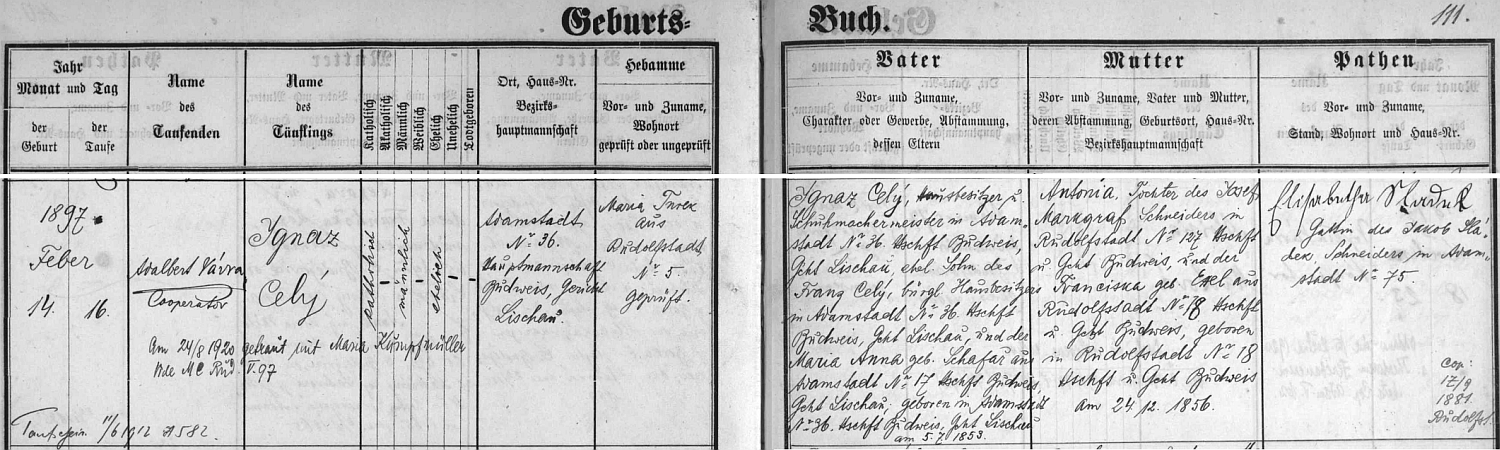 Geburts=
Buch.
111.
Jahr
Monat und Tag
der Geburt
der Taufe
Name
des
Taufenden
Name
des
Täuflings
Katholisch
Akatholisch
Männlich
Weiblich
Ehelich
Unehelich
Todtgeboren
Ort, Haus-Nr.
Bezirks-
hauptmannschaft
Hebamme
Vor- und Zuname,
Wohnort
geprüft oder ungeprüft
Vater
Vor- und Zuname,
Charakter oder Gewerbe, Abstammung,
dessen Eltern
Mutter
Vor- und Zuname, Vater und Mutter,
deren Abstammung, Geburtsort, Haus-Nr.
Bezirkshauptmannschaft
Pathen
Vor- und Zuname,
Stand, Wohnort und Haus-Nr.
1897
Feber
14. 16.
Adalbert Vávra
Cooperator
Ignaz
Cely
katholisch
männlich
ehelich
Adamstadt
No 36.
Hauptmannschaft
Budweis, Gericht
Lischau.
Maria Turek
aus
Rudolfstadt
No 5.
geprüft.
Am 24/8 1920 getraut mit Maria Kümpfmüller
vide MC Rud. V. 97
Taufschein 11/6 1912 # 582.
Ignaz Celý, Hausbesitzer u.
Schuhmachermeister in Adam-
stadt No 36. Hschft Budweis,
Gcht Lischau, ehel. Sohn des
Franz Celý, bürgl. Hausbesitzers
in Adamstadt No 36 Hschft
Budweis, Gcht Lischau, und der
Maria Anna geb. Schafar aus
Adamstadt No 17 Hschft Budweis,
Gcht Lischau; geboren in Adamstadt
No 36. Hschft Budweis, Gcht Lischau
am 5. 7. 1853.
Antonia, Tochter des Josef
Markgraf, Schneiders in
Rudolfstadt No 127 Hschft
u. Gcht Budweis, und der
Franciska geb. Exel aus
Rudolfsstadt No 18 Hschft
u. Gcht Budweis, geboren
in Rudolfstadt No 18
Hschft u. Gcht Budweis
am 24. 12. 1856.
Elisabetha Sladek
Gattin des Jakob Slá-
dek, Schneiders in Adam-
stadt No 75.
Cop:
17/9
1881.
Rudolfst.